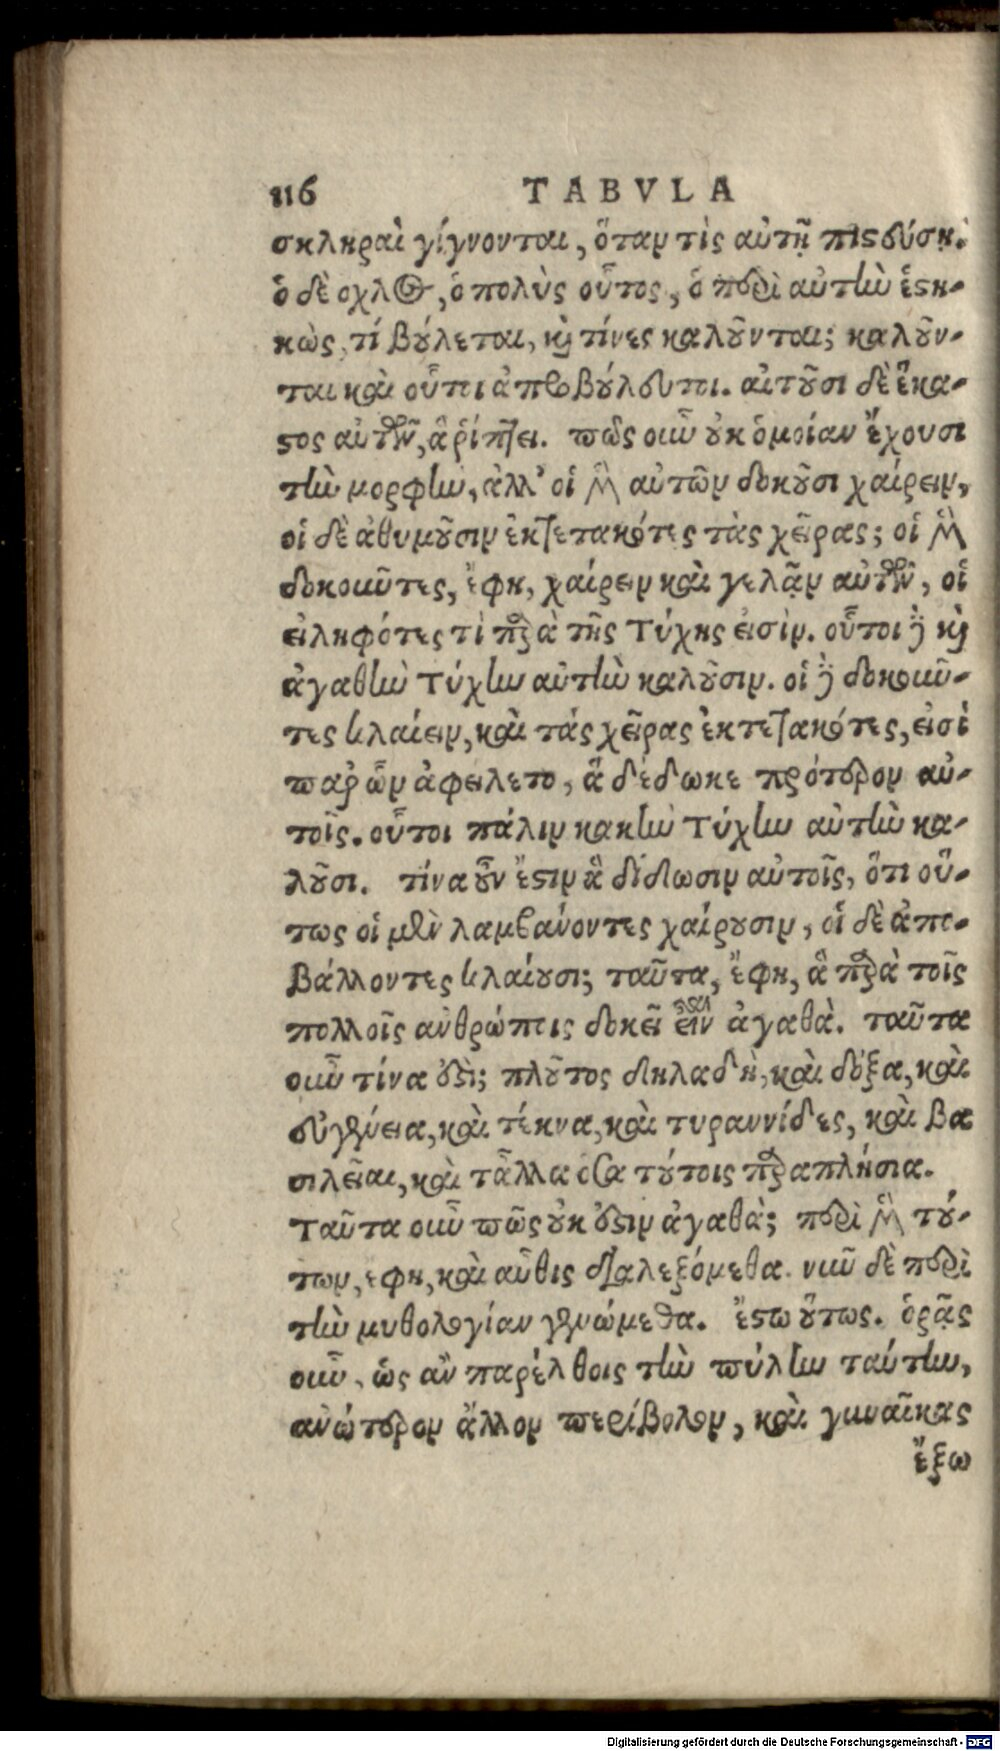 116 TABVLA
σκληραὶ γίγνονται, ὅταν τὶς αὐτῇ πιστεύσῃ.
ὁ δὲ οχλος, ὁ πολὺς οὗτος, ὁ περὶ αὐτὴν ἑστη-
κὼς, τί βούλεται, καὶ τίνες καλοῦνται; καλοῦν-
ται καὶ οὗτοι ἀπροβούλευτοι. αἰτοῦσι δὲ ἕκα-
στος αὐτῶν, ἃ ῥίπτει. πῶς οὖν οὐκ ὁμοίαν ἔχουσι
τὴν μορφὴν, ἀλλ' οἱ μὲν αὐτῶν δοκοῦσι χαίρειν,
οἱ δὲ ἀθυμοῦσιν ἐκτετακότες τὰς χεῖρας; οἱ μὲν
δοκοῦντες, ἔφη, χαίρειν καὶ γελᾷν αὐτῶν, οἱ
εἰληφότες τὶ παρὰ τῆς Τύχης εἰσίν. οὗτοι δὲ καὶ
ἀγαθὴν Τύχην αὐτὴν καλοῦσιν. οἱ δὲ δοκοῦν-
τες κλαίειν, καὶ τάς χεῖρας ἐκτετακότες, εἰσὶ
παρ' ὧν ἀφείλετο, ἃ δέδωκε πρότερον αὐ-
τοῖς. οὗτοι πάλιν κακὴν Τύχην αὐτὴν κα-
λοῦσι. τίνα οὖν ἔστιν ἃ δίδωσιν αὐτοῖς, ὅτι οὕ-
τως οἱ μὲν λαμβάνοντες χαίρουσιν, οἱ δὲ ἀπο-
βάλλοντες κλαίουσι; ταῦτα, ἔφη, ἃ παρὰ τοῖς
πολλοῖς ἀνθρώποις δοκεῖ εἶναι ἀγαθὰ. ταῦτα
οὖν τίνα ἐστὶ; πλοῦτος δηλαδὴ, καὶ δόξα, καὶ
εὐγένεια, καὶ τέκνα, καὶ τυραννίδες, καὶ βα
σιλεῖαι, καὶ τἆλλα ὅσα τούτοις παραπλήσια.
ταῦτα οὖν πῶς οὐκ ἐστιν ἀγαθὰ; περὶ μὲν τού-
των, ἔφη, καὶ αὖθις διαλεξόμεθα. νῦν δὲ περὶ
τὴν μυθολογίαν γενώμεθα. ἔστω οὕτως. ὁρᾷς
οὖν, ὡς ἂν παρέλθοις τὴν πύλην ταύτην,
ἀνώτερον ἄλλον περίβολον, καὶ γυναῖκας
ἔξω
Digitalisierung gefördert durch die Deutsche Forschungsgemeinschaft - DFG